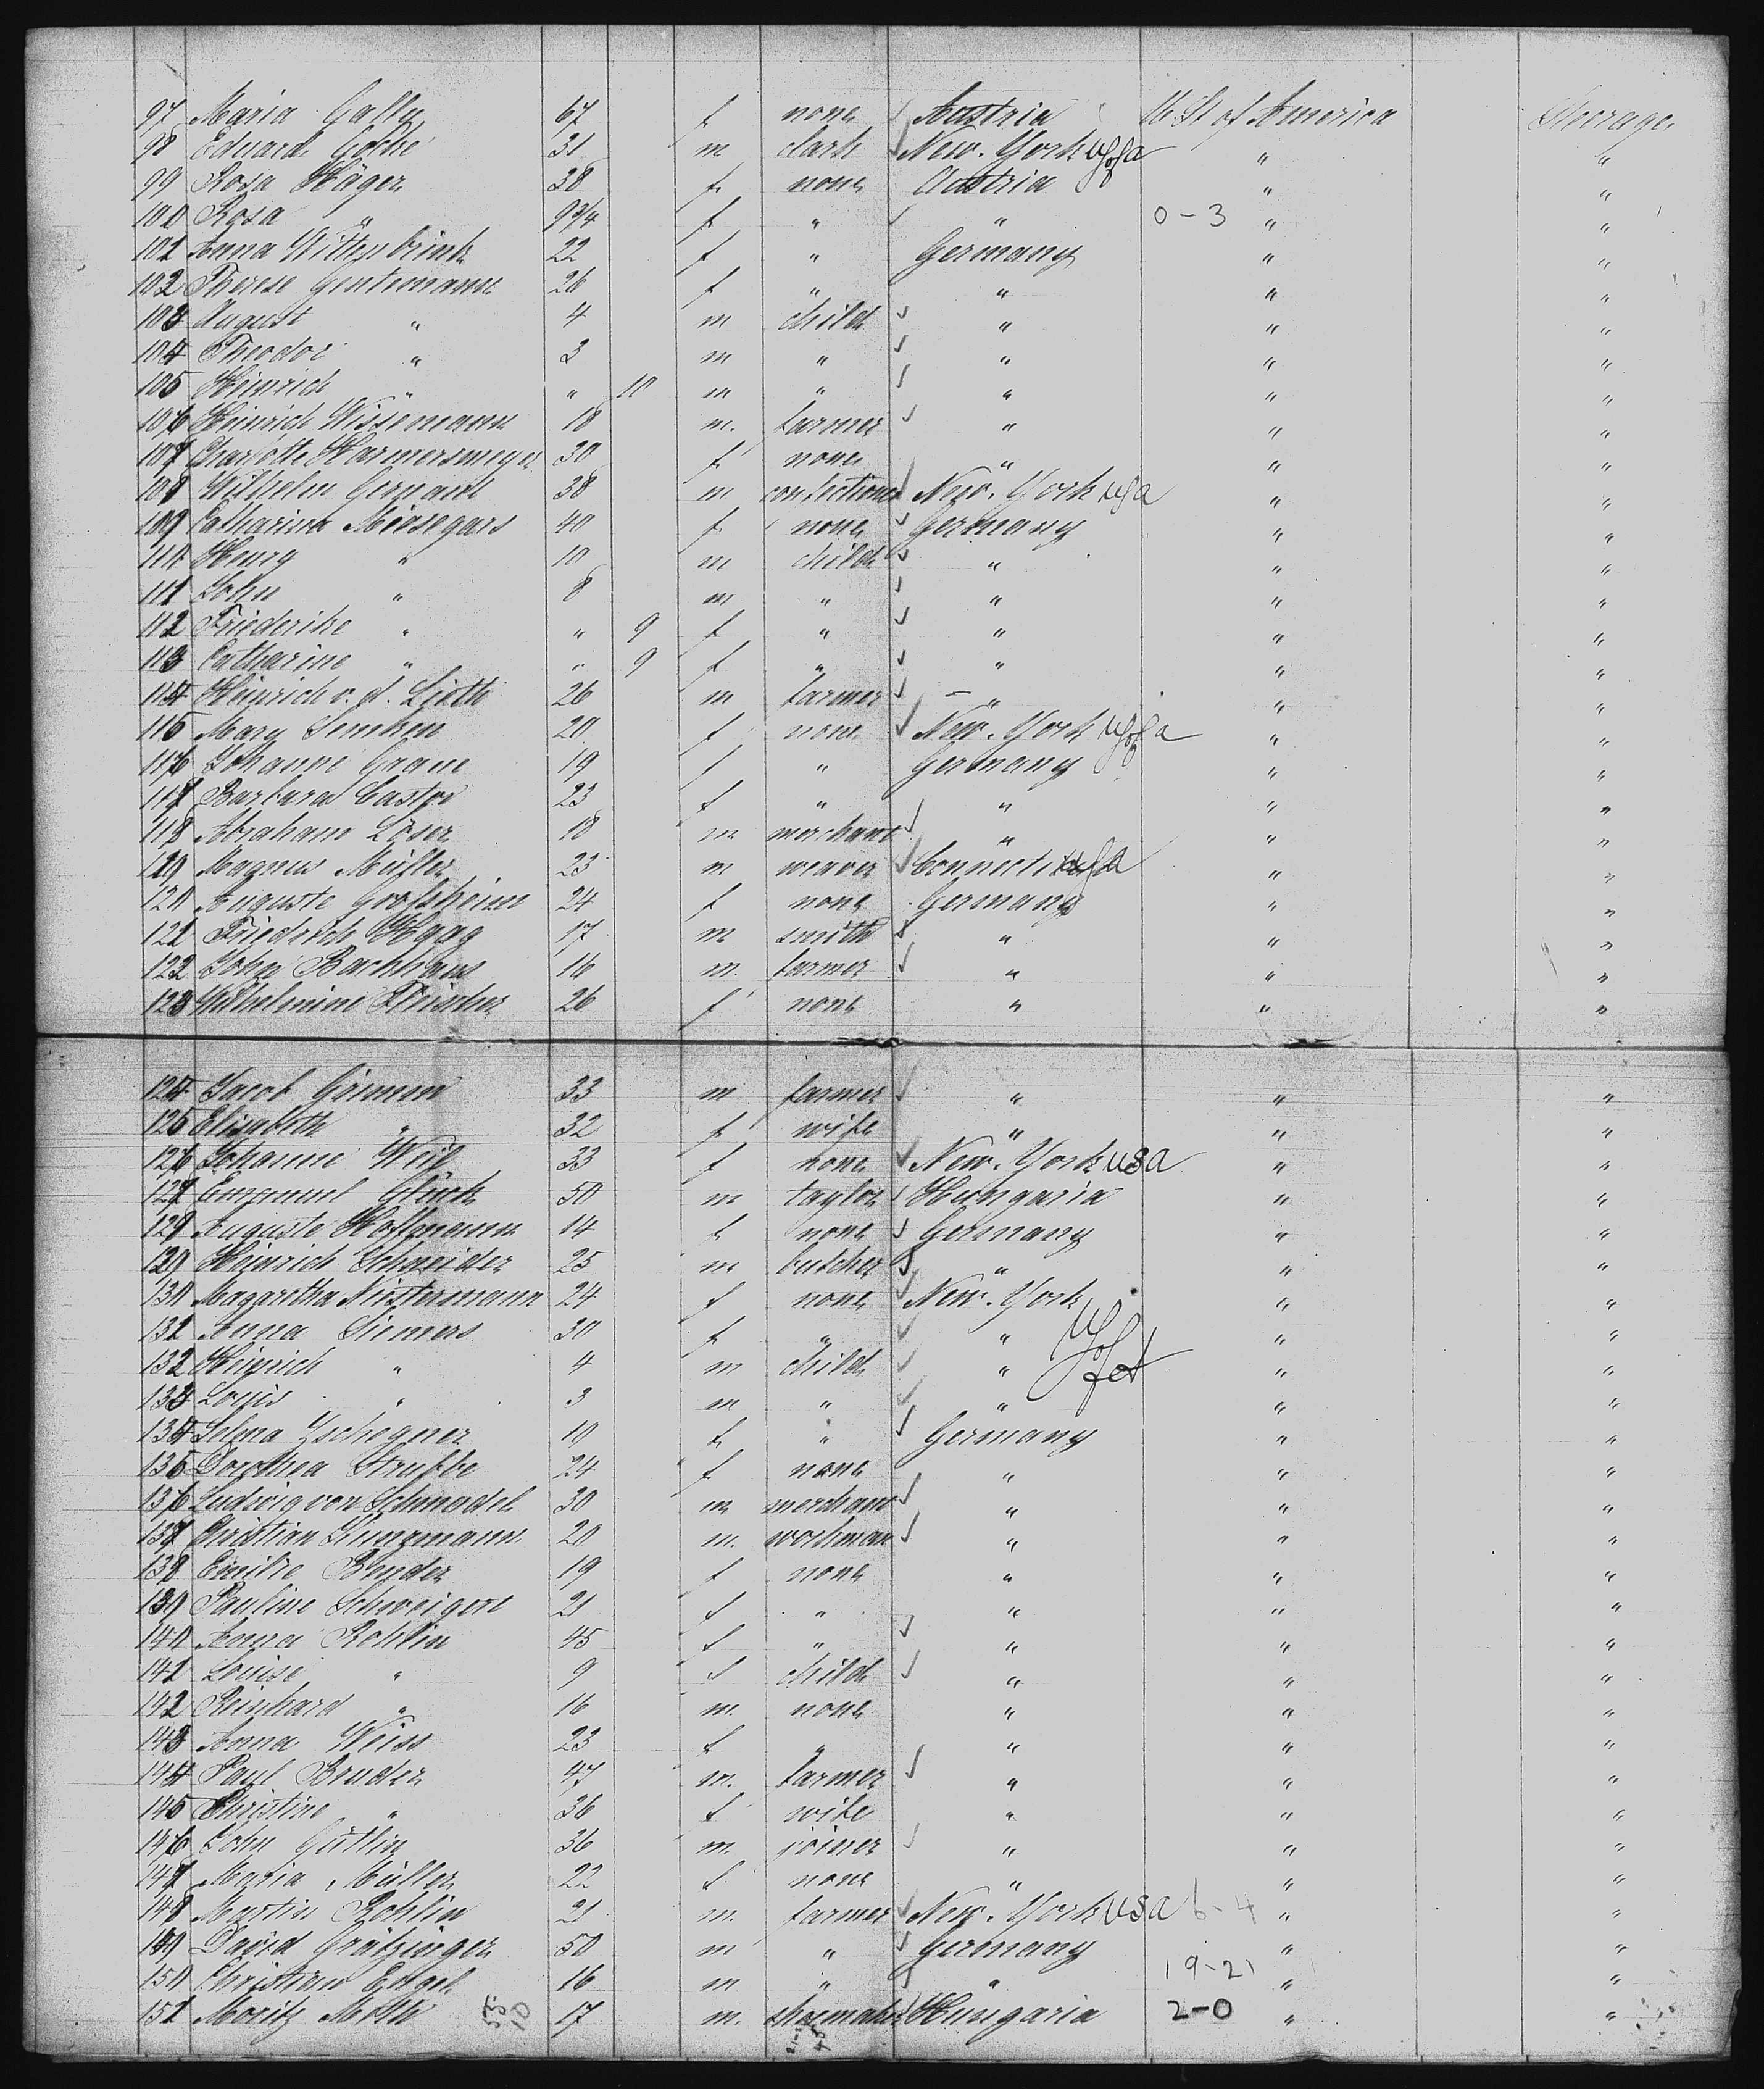 97 Maria Galle 67 f none Austria U. St of America Steerage
98 Eduard 31 m clark New-York usa " "
99 Rosa Häger 38 f none Austria " "
100 Rosa " 9 3/4 f " " 0-3 " "
101 Anna Wittenbrink 22 f " Germany " "
102 Therese Gentemann 26 f " " " "
103 August " 4 m child " " "
104 Theodor " 3 m " " " "
105 Heinrich " " 10 m " " " "
106 Heinrich Wissemann 18 m. farmer " " "
107 Charlotte Harmersmeyer 30 f none " " "
108 Wilhelm Gernant 38 m confectioner New-York usa " "
109 Catharina 40 f none Germany " "
110 Henry " 10 m child " " "
111 John " 8 m " " " "
112 Friederike " " 9 f " " " "
113 Catharine " " 9 f " " " "
114 Heinrich v. d. Lieth 26 m farmer " " "
115 Mary 20 f none New-York usa " "
116 Johanne 19 f " Germany " "
117 Barbara Castor 23 f " " " "
118 Abraham Löser 18 m merchant " " "
119 Magnus Müller 23 m weaver usa " "
120 Auguste 24 f none Germany " "
121 Friedrich Haag 17 m smith " " "
122 John Bachhaus 16 m. farmer " " "
123 Wilhelmine Fleischer 26 f none " " "
124 Jacob Grimm 33 m farmer " " "
125 Elisabeth " 32 f wife " " "
126 Johanne Weil 33 f none New-York usa " "
127 Emanuel Glück 50 m taylor Hungaria " "
128 Auguste Hoffmann 14 f none Germany " "
129 Heinrich Schneider 25 m butcher " " "
130 Magaretha Niestermann 24 f none New-York " "
131 Anna Siemers 30 f " " " "
132 Heinrich " 4 m child " " "
133 Louis " 3 m " " " "
134 Selma Zschegner 19 f " Germany " "
135 Dorothea Strubbe 24 f none " " "
136 Ludwig von Schmadel 30 m merchant " " "
137 Christian Kunzmann 20 m. workman " " "
138 Emilie Bender 19 f none " " "
139 Pauline Schweigert 21 f " " " "
140 Anna Rohlin 45 f " " " "
141 Louise " 9 f child " " "
142 Reinhard " 16 m. none " " "
143 Anna Weiss 23 f " " " "
144 Paul Bruder 47 m. farmer " " "
145 Christine " 36 f wife " " "
146 John Gütlin 36 m. joiner " " "
147 Maria Müller 22 f none " " "
148 Martin Rohlin 21 m. farmer New-York usa 6-4 " "
149 David Grätzinger 50 m " Germany " "
150 Christian Engel 16 m " " 19-21 " "
151 Moritz Moth 17 m. shoemaker Hungaria 2-0 " "